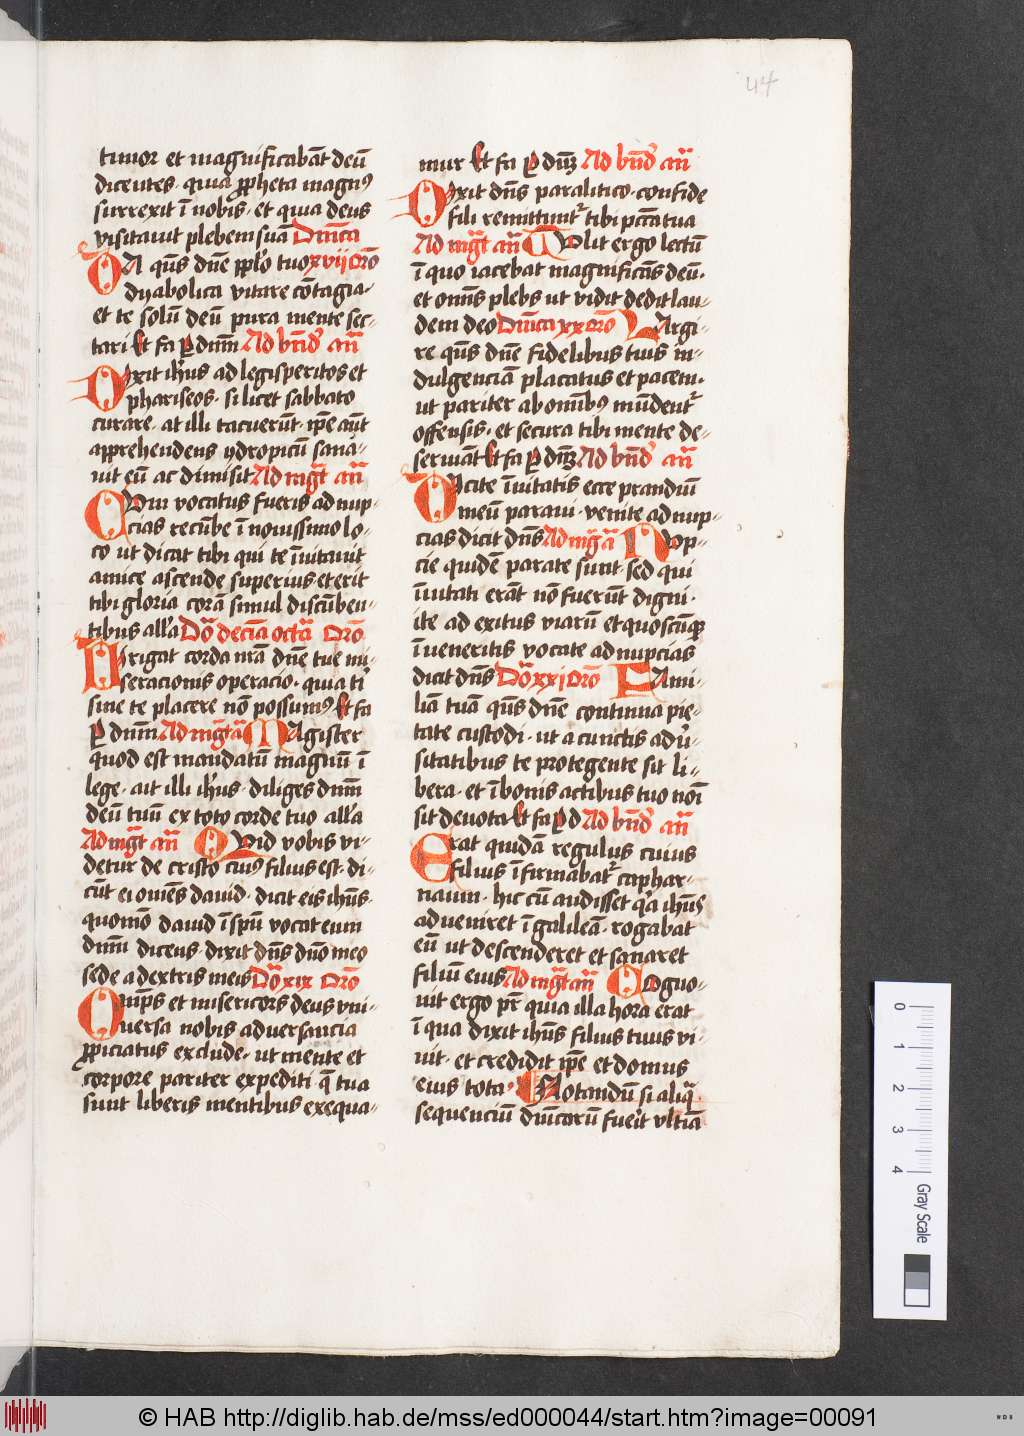 44
timor et magnificabāt deū
dicentes · quia ꝓpheta magnꝰ
surrexit ī nobis · et quia deus
visitauit plebem suā Dnīca
DA qs̄ dn̄e pplo tuo xvij orō
dyabolica vitare cōtagia ·
et te solū deū pura mente sec-
tari Et fa ꝑ dnm̄ Ad bn̄dꝰ an̄
Dixit ihūs ad legisperitos et
phariseos · si licet sabbato
curare · at illi tacuerūt · ip̄e aūt
apprehendens ydropicū sana-
uit eū ac dimisit Ad mgt̄ an̄
Cum vocatus fueris ad nup-
cias recūbe ī nouissimo lo-
co ut dicat tibi qui te īuitauit
amice ascende superius et erit
tibi gloria corā simul discūben-
tibus alla Do decīa octā Orō
Dirigat corda nrā dn̄e tue mi-
seracionis operacio · quia ti
sine te placere nō possumꝰ Et fa
ꝑ dnm̄ Ad mgt̄ a Magister
quod est mandatū magnū ī
lege · ait illi ihūs · diliges dnm̄
deū tuū ex toto corde tuo alla
Ad mgt̄ an̄ Quid vobis vi-
detur de cristo cuiꝰ filius est · di-
cūt ei omēs dauid · dicit eis ihūs ·
quomō dauid ī spū vocat eum
dnm̄ dicens · dixit dn̄s dnō meo
sede a dextris meis Do xix Orō
Omīps et misericors deus vni-
uersa nobis aduersancia
ꝓpiciatus exclude · ut mente et
corpore pariter expediti q̄ tua
sunt liberis mentibus exequa-
mur Et fa ꝑ dnm̄ Ad bn̄dꝰ an̄
Dixit dn̄s paralitico · confide
fili remittunt tibi pcc̄a tua
Ad mgt̄ an̄ Tulit ergo lectū
ī quo iacebat magnificās deū ·
et omīs plebs ut vidit dedit lau-
dem deo Dnīca xx orō LArgi-
re qs̄ dn̄e fidelibus tuis in-
dulgenciā placatus et pacem ·
ut pariter ab omībꝰ mūdent
offensis · et secura tibi mente de-
seruiāt Et fa ꝑ dnm̄ Ad bn̄dꝰ an̄
Dicite īuitatis ecce prandiū
meū paraui · venite ad nup-
cias dicit dn̄s Ad mg a Nup-
cie quidē parate sunt sed qui
īuitati erāt nō fuerūt digni ·
ite ad exitus viarū et quoscūqꝫ
īueneritis vocate ad nupcias
dicit dn̄s Do xxj Orō FAmi-
liā tuā qs̄ dn̄e continua pie-
tate custodi · ut a cunctis adu-
sitatibus te protegente sit li-
bera · et ī bonis actibus tuo noī
sit deuota Et fa ꝑ d Ad bn̄dꝰ an̄
Erat quidā regulus cuius
filius īfirmabat caphar-
naum · hic cū audisset qa ihūs
adueniret ī galileā · rogabat
eū ut descenderet et sanaret
filiū eius Ad mgt̄ an̄ Cogno-
uit ergo pr̄ quia illa hora erat
ī qua dixit ihūs filius tuus vi-
uit · et credidit ip̄e et domus
eius tota · Notandū si aliq
sequenciū dnīcarū fueit vltīa
0 1 2 3 4 Gray Scale
© HAB http://diglib.hab.de/mss/ed000044/start.htm?image=00091